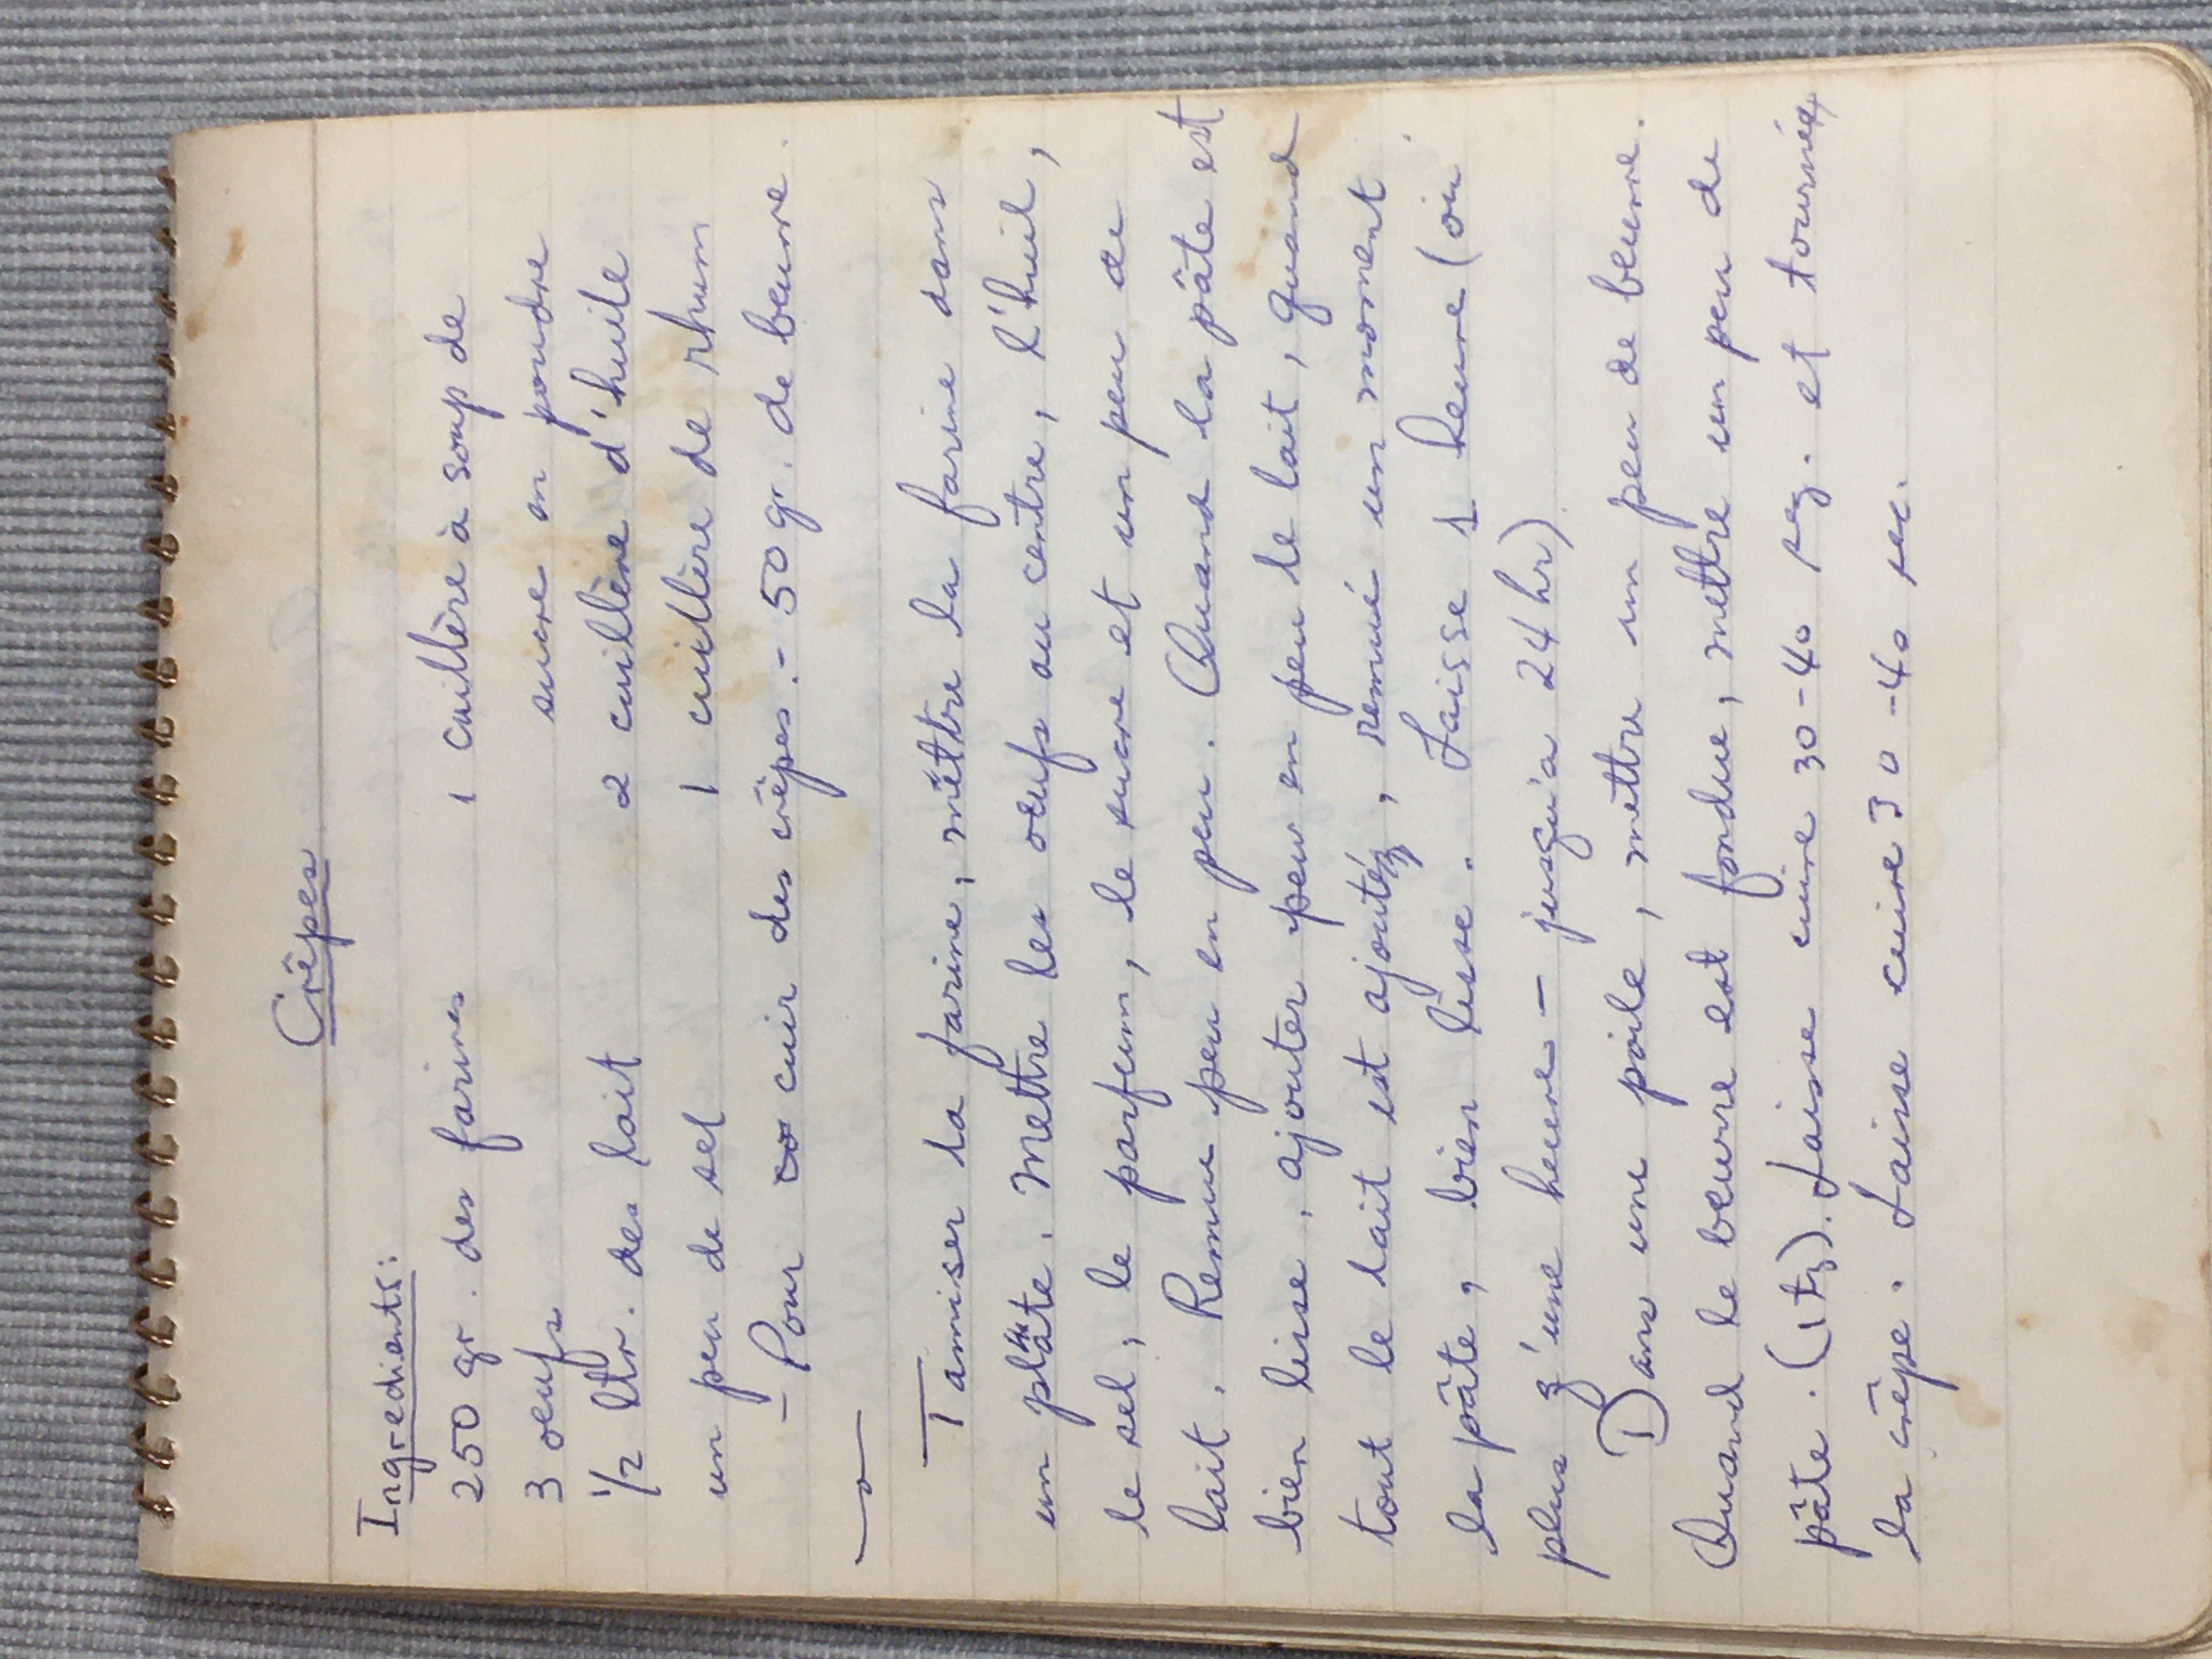 Crêpes
Ingredients:
250 gr. des farines 1 cuillère à soup de
3 oeufs sucre en poudre
1/2 ltr. des lait 2 cuillère d'huile
un peu de sel 1 cuillère de rhum
- Pour cuir des crêpes :- 50 gr. de beurre.
Tamiser la farine, mettre la farine dans
un plate. Mettre les oeufs au centre, l'huil,
le sel, le parfum, le sucre et un peu de
lait. Remue peu en peu. Quand la pâte est
bien lise, ajouter peu en peu le lait, quand
tout le lait est ajouté, remué un moment
la pâte, bien lisse. Laisse 1 heure (ou
plus q'une heure - jusqu'a 24 hr)
Dans une poile, mettre un peu de beurre.
Quand le beurre est fondue, mettre un peu de
pâte. (1tz). Laisse cuire 30-40 seg. et tournée
la crêpe. Laisse cuire 30-40 sec.